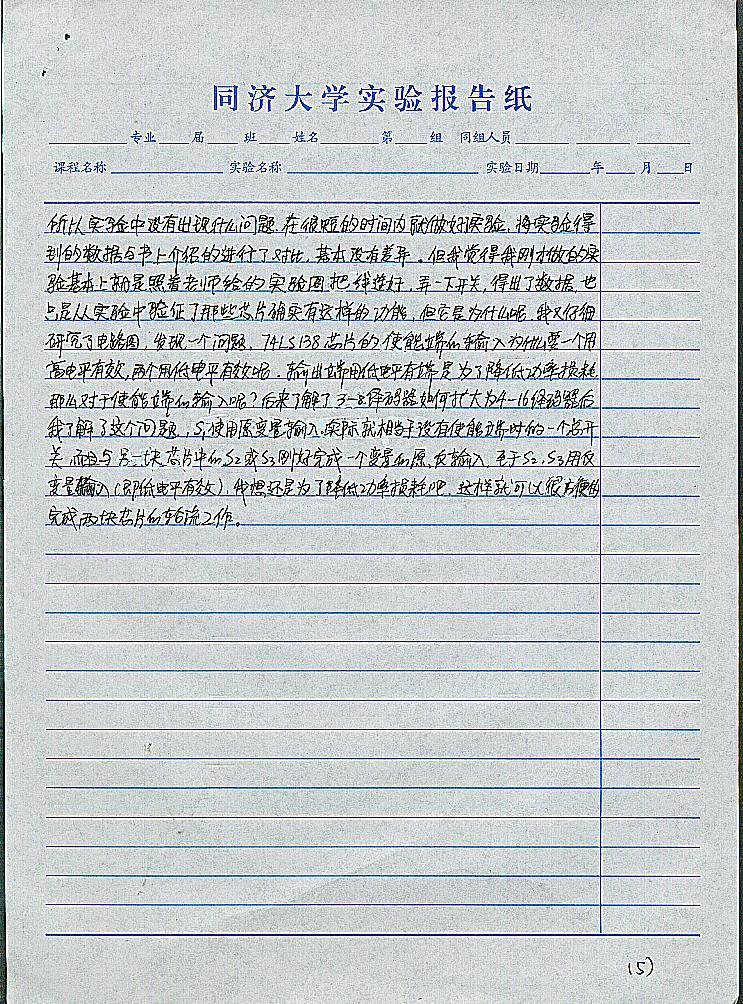 同济大学实验报告纸
专业 届 班 姓名 第 组 同组人员
课程名称 实验名称 实验日期 年 月 日
所以实验中没有出现什么问题.在很短的时间内就做好实验,将实验得
到的数据与书上介绍的进行了对比,基本没有差异。但我觉得我刚才做的实
验基本上就是照着老师给的实验图把线连好,弄一下开关,得出了数据,也
只是从实验中验证了那些芯片确实有这样的功能,但它是为什么呢,我又仔细
研究了电路图,发现一个问题,74LS138芯片的使能端的输入为什么要一个用
高电平有效,两个用低电平有效呢,输出端用低电平有端是为了降低功率损耗
那么对于使能端的输入呢?后来了解了3-8译码器如何扩大为4-16译码器后
我了解了这个问题,S₁使用原变量输入,实际就相当于没有使能端时的一个总开
关,而且与另一块芯片中的S₂或S₃刚好完成一个变量的原、反输入,至于S₂、S₃用反
变量输入(即低电平有效),我想还是为了降低功率损耗吧,这样就可以很方便的
完成两块芯片的轮流工作。
(5)